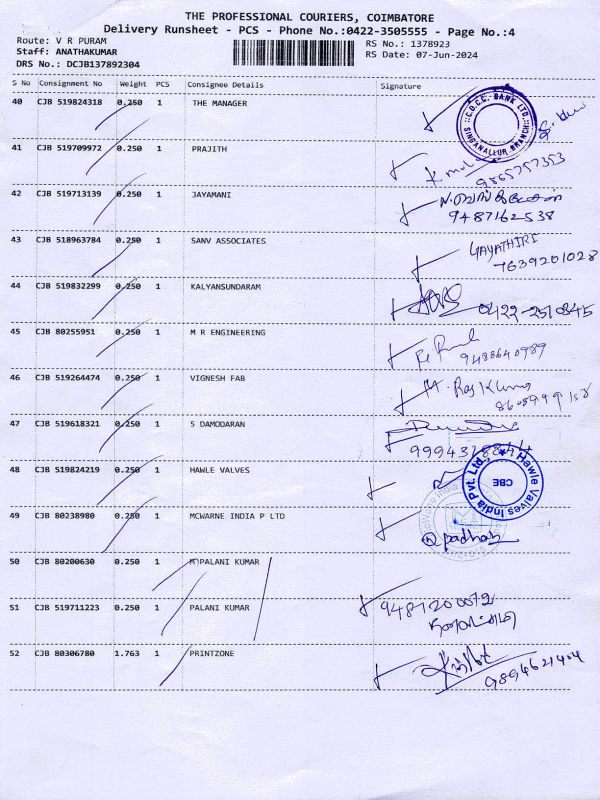 THE PROFESSIONAL COURIERS, COIMBATORE
Delivery Runsheet - PCS - Phone No.:0422-3505555 - Page No.:4
Route: V R PURAM
RS No.: 1378923
Staff: ANATHAKUMAR
RS Date: 07-Jun-2024
DRS No.: DCJB137892304
S No Consignment No Weight PCS Consignee Details Signature
40 CJB 519824318 0.250 1 THE MANAGER
C.D.C.C. BANK LTD.
SINGANALLUR BRANCH
41 CJB 519709972 0.250 1 PRAJITH
9865757353
42 CJB 519713139 0.250 1 JAYAMANI
9487162538
43 CJB 518963784 0.250 1 SANV ASSOCIATES GAYATHIRI
7639201028
44 CJB 519832299 0.250 1 KALYANSUNDARAM
45 CJB 80255951 0.250 1 M R ENGINEERING
9488640989
46 CJB 519264474 0.250 1 VIGNESH FAB M. Raj Kumar
47 CJB 519618321 0.250 1 S DAMODARAN
48 CJB 519824219 0.250 1 HAWLE VALVES
Hawle Valves India Pvt. Ltd.
CBE
49 CJB 80238980 0.250 1 MCWARNE INDIA P LTD
50 CJB 80200630 0.250 1 M PALANI KUMAR
51 CJB 519711223 0.250 1 PALANI KUMAR 9487200072
52 CJB 80306780 1.763 1 PRINTZONE